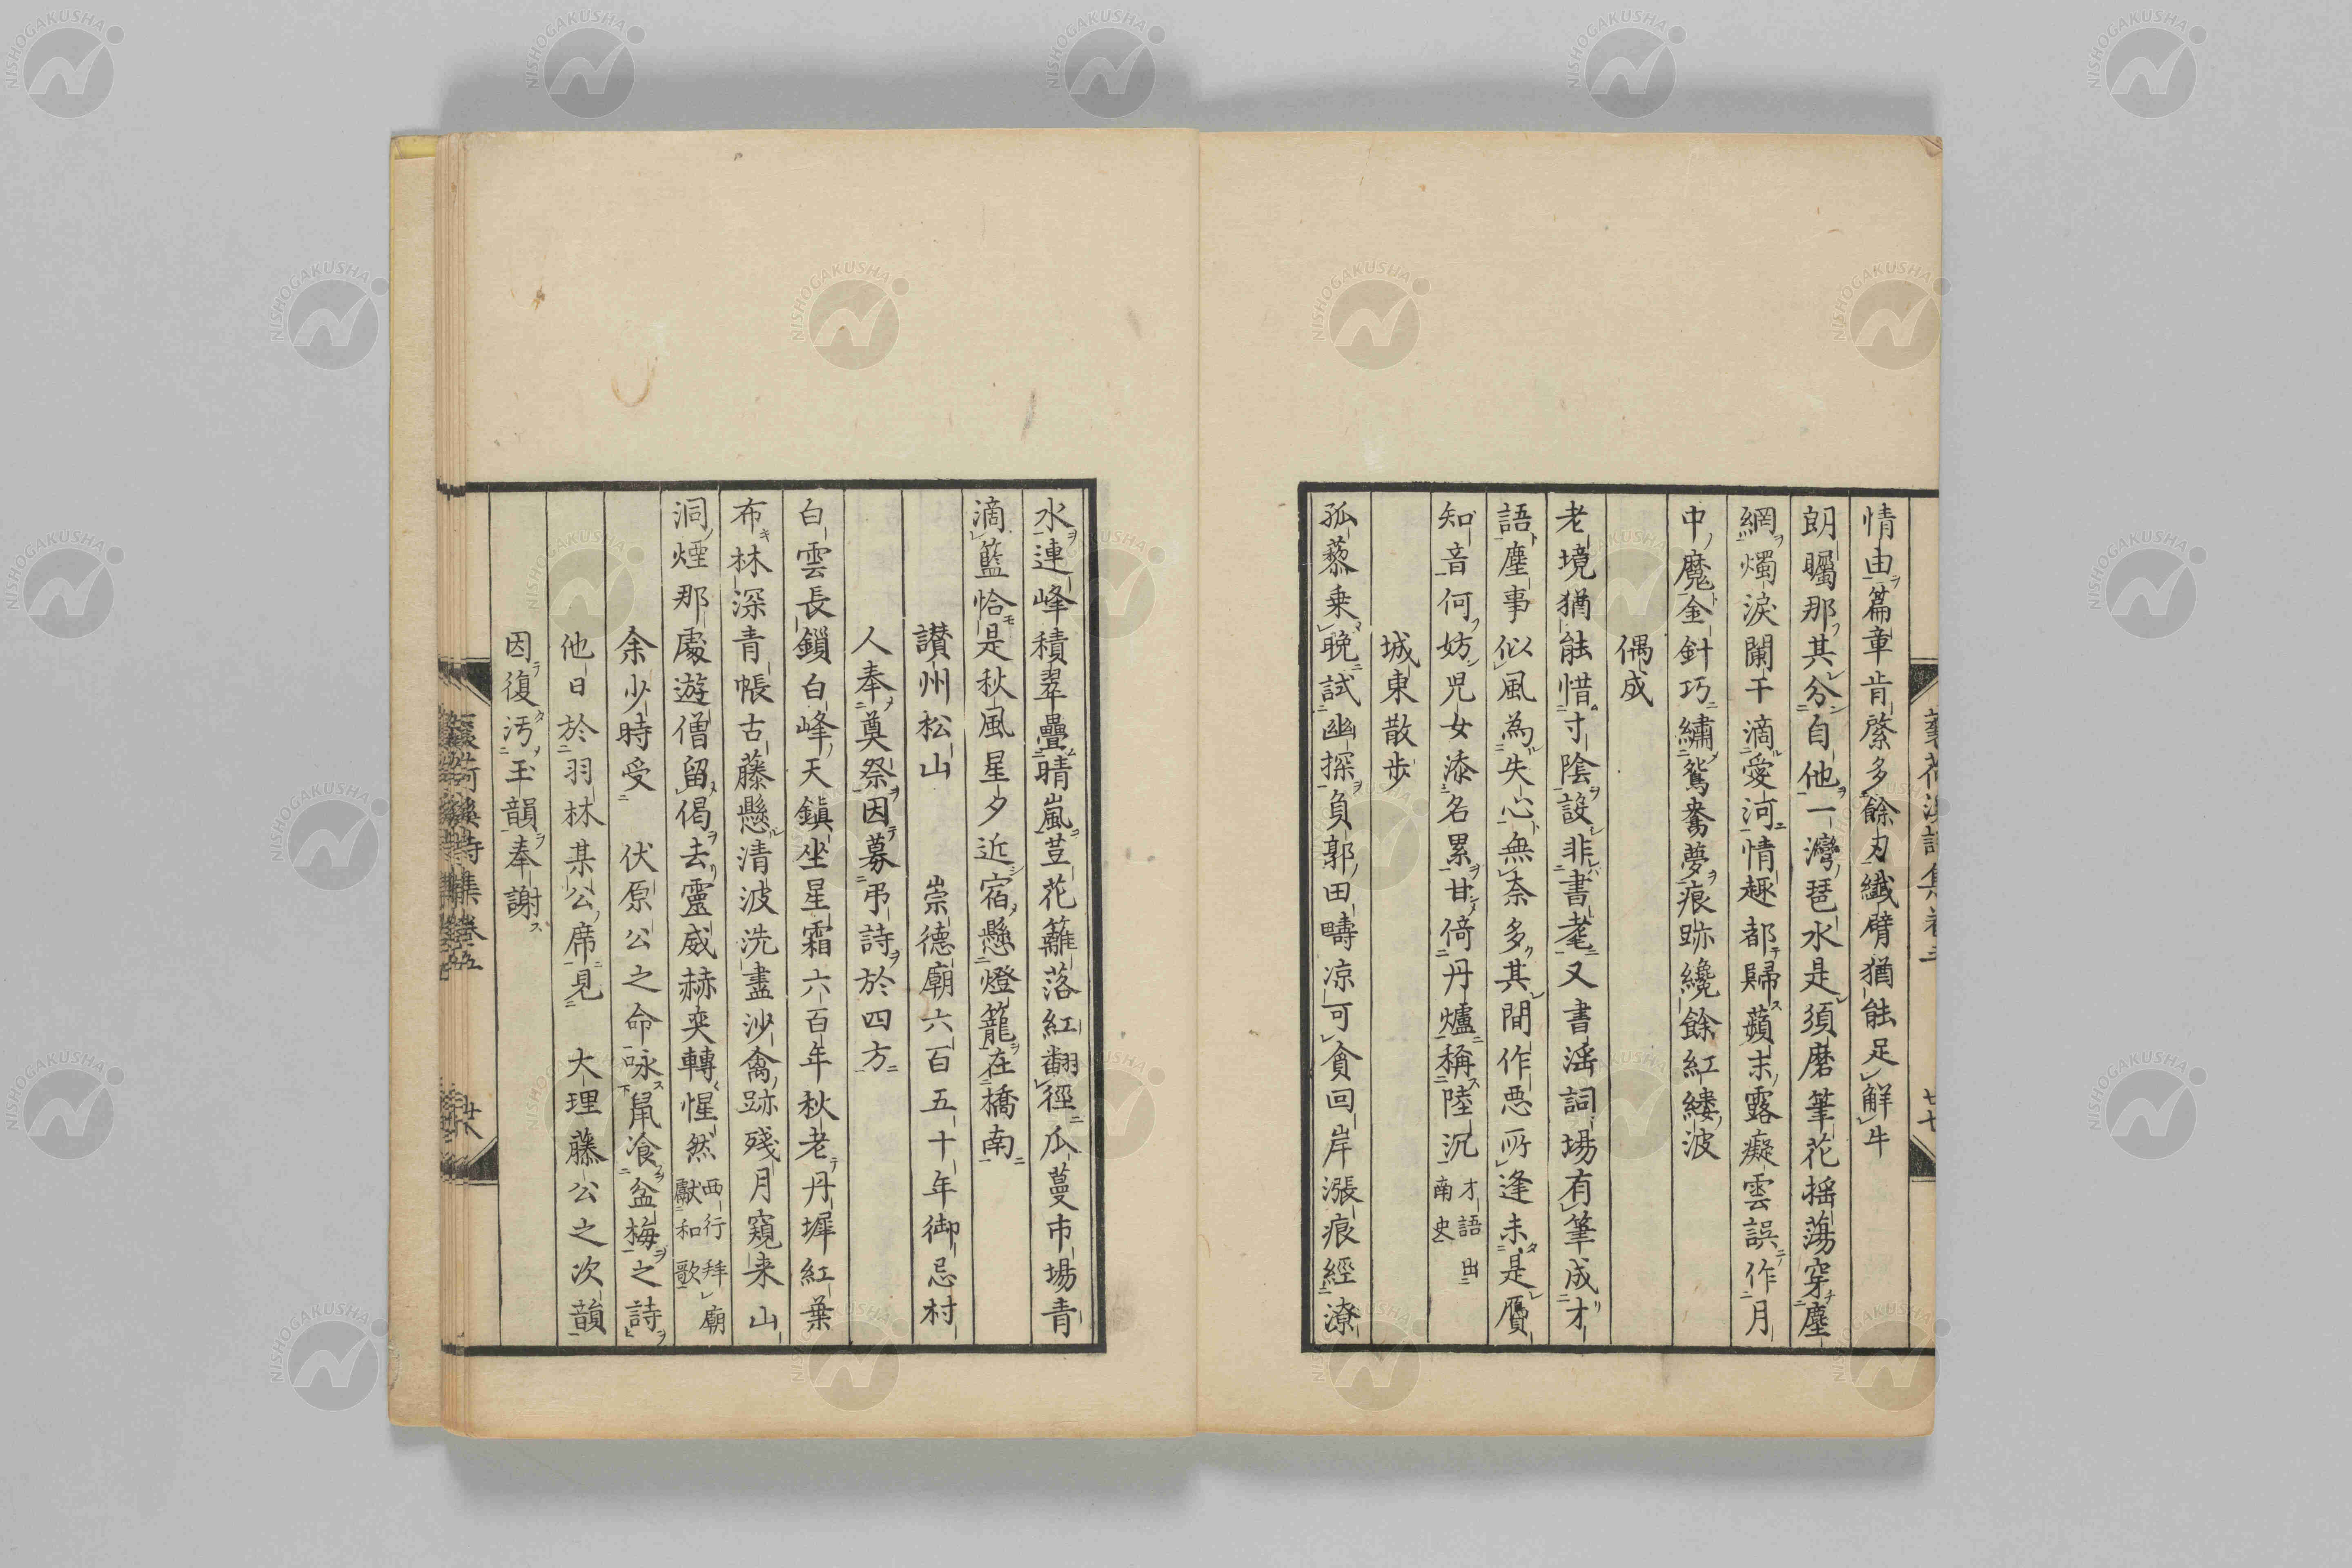 情由篇章肯綮多餘刃纖臂猶能足解牛
朗矚那其分自他一灣琶水是須磨筆花搖蕩穿塵
網燭淚闌干滴愛河情趣都歸蘋末露癡雲誤作月
中魔金針巧繡鴛鴦夢痕跡纔餘紅縷波
偶成
老境猶能惜寸陰設非書耄又書淫詞場有筆成才
語塵事似風為失心無柰多其間作惡所逢未是贋
知音何妨兒女添名累甘倚丹爐稱陸沉
才語出南史
城東散步
孤藜乗晚試幽探負郭田疇凉可貪回岸漲痕經潦
水連峰積翠疊晴嵐荳花籬落紅翻徑瓜蔓市場青
滴籃恰是秋風星夕近宿懸燈籠在橋南
讃州松山 崇德廟六百五十年御忌村
人奉奠祭因募弔詩於四方
白雲長鎖白峰天鎮坐星霜六百年秋老丹墀紅葉
布林深青帳古藤懸清波洗盡沙禽跡殘月窺来山
洞煙那處遊僧留偈去靈威赫奕轉惺然
西行拜廟獻和歌
余少時受 伏原公之命咏鼠飡盆梅之詩
他日於羽林某公席見 大理藤公之次韻
因復汚玉韻奉謝
NISHOGAKUSHA